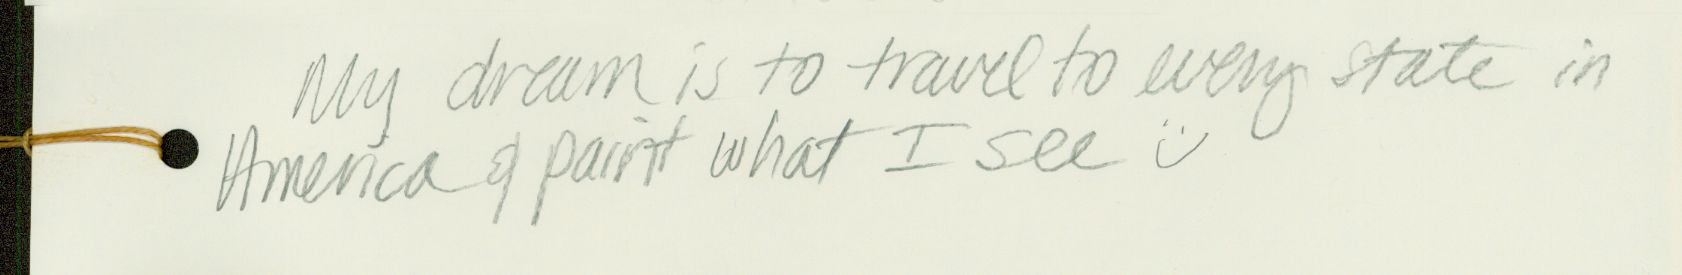 My dream is to travel to every state in
America & paint what I see :)